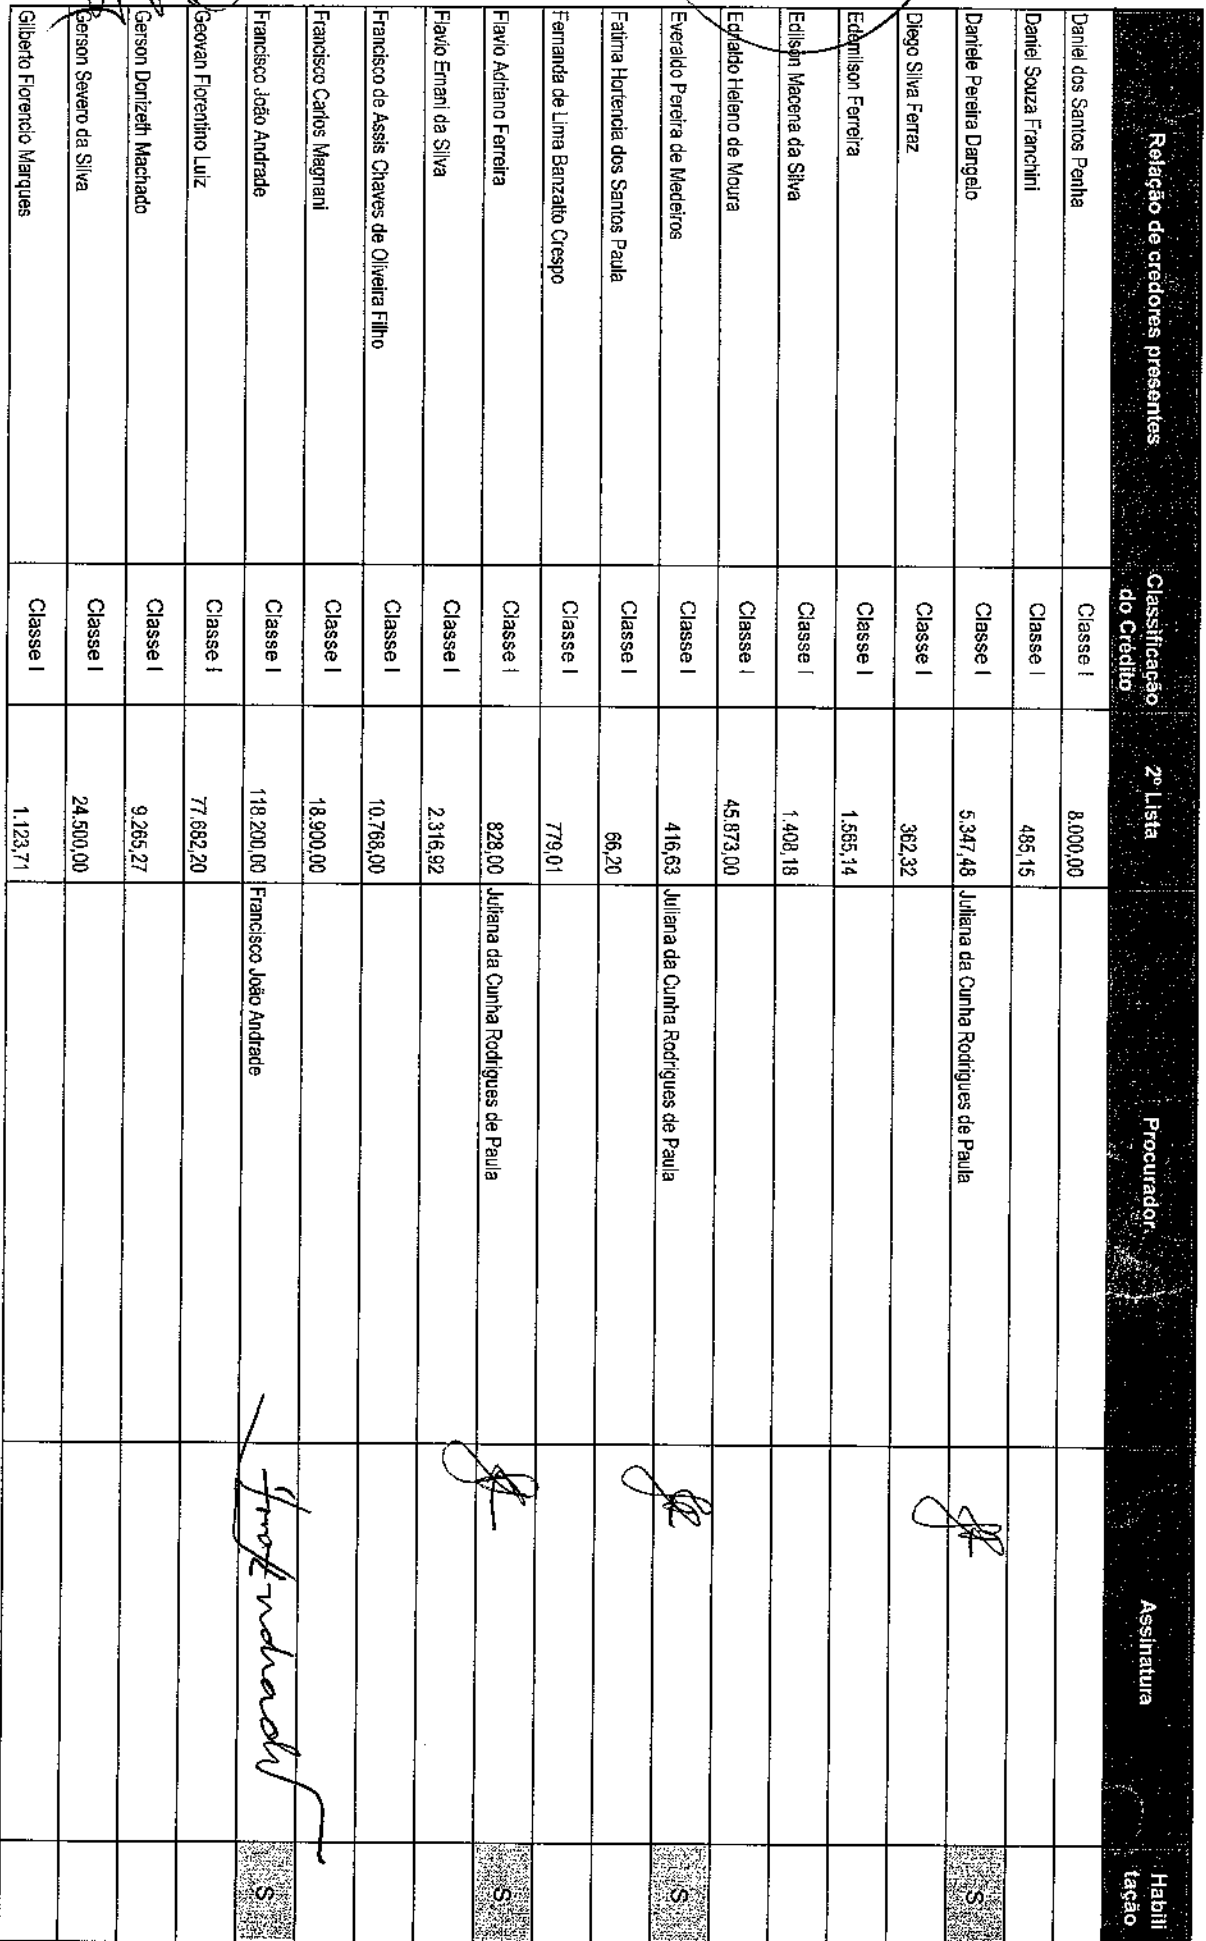 Relação de credores presentes Classificação do Crédito 2º Lista Procurador Assinatura Habilitação
Daniel dos Santos Penha Classe I 8.000,00
Daniel Souza Franchini Classe I 485,15
Daniele Pereira Dangelo Classe I 5.347,48 Juliana da Cunha Rodrigues de Paula S
Diego Silva Ferraz Classe I 362,32
Edemilson Ferreira Classe I 1.565,14
Edilson Macena da Silva Classe I 1.408,18
Ednaldo Heleno de Moura Classe I 45.873,00
Everaldo Pereira de Medeiros Classe I 416,63 Juliana da Cunha Rodrigues de Paula S
Fatima Hortencia dos Santos Paula Classe I 66,20
Fernanda de Lima Banzatto Crespo Classe I 779,01
Flavio Adriano Ferreira Classe I 828,00 Juliana da Cunha Rodrigues de Paula S
Flavio Ernani da Silva Classe I 2.316,92
Francisco de Assis Chaves de Oliveira Filho Classe I 10.768,00
Francisco Carlos Magnani Classe I 18.900,00
Francisco João Andrade Classe I 118.200,00 Francisco João Andrade S
Geovan Florentino Luiz Classe I 77.682,20
Gerson Donizeth Machado Classe I 9.265,27
Gerson Severo da Silva Classe I 24.500,00
Gilberto Florencio Marques Classe I 1.123,71